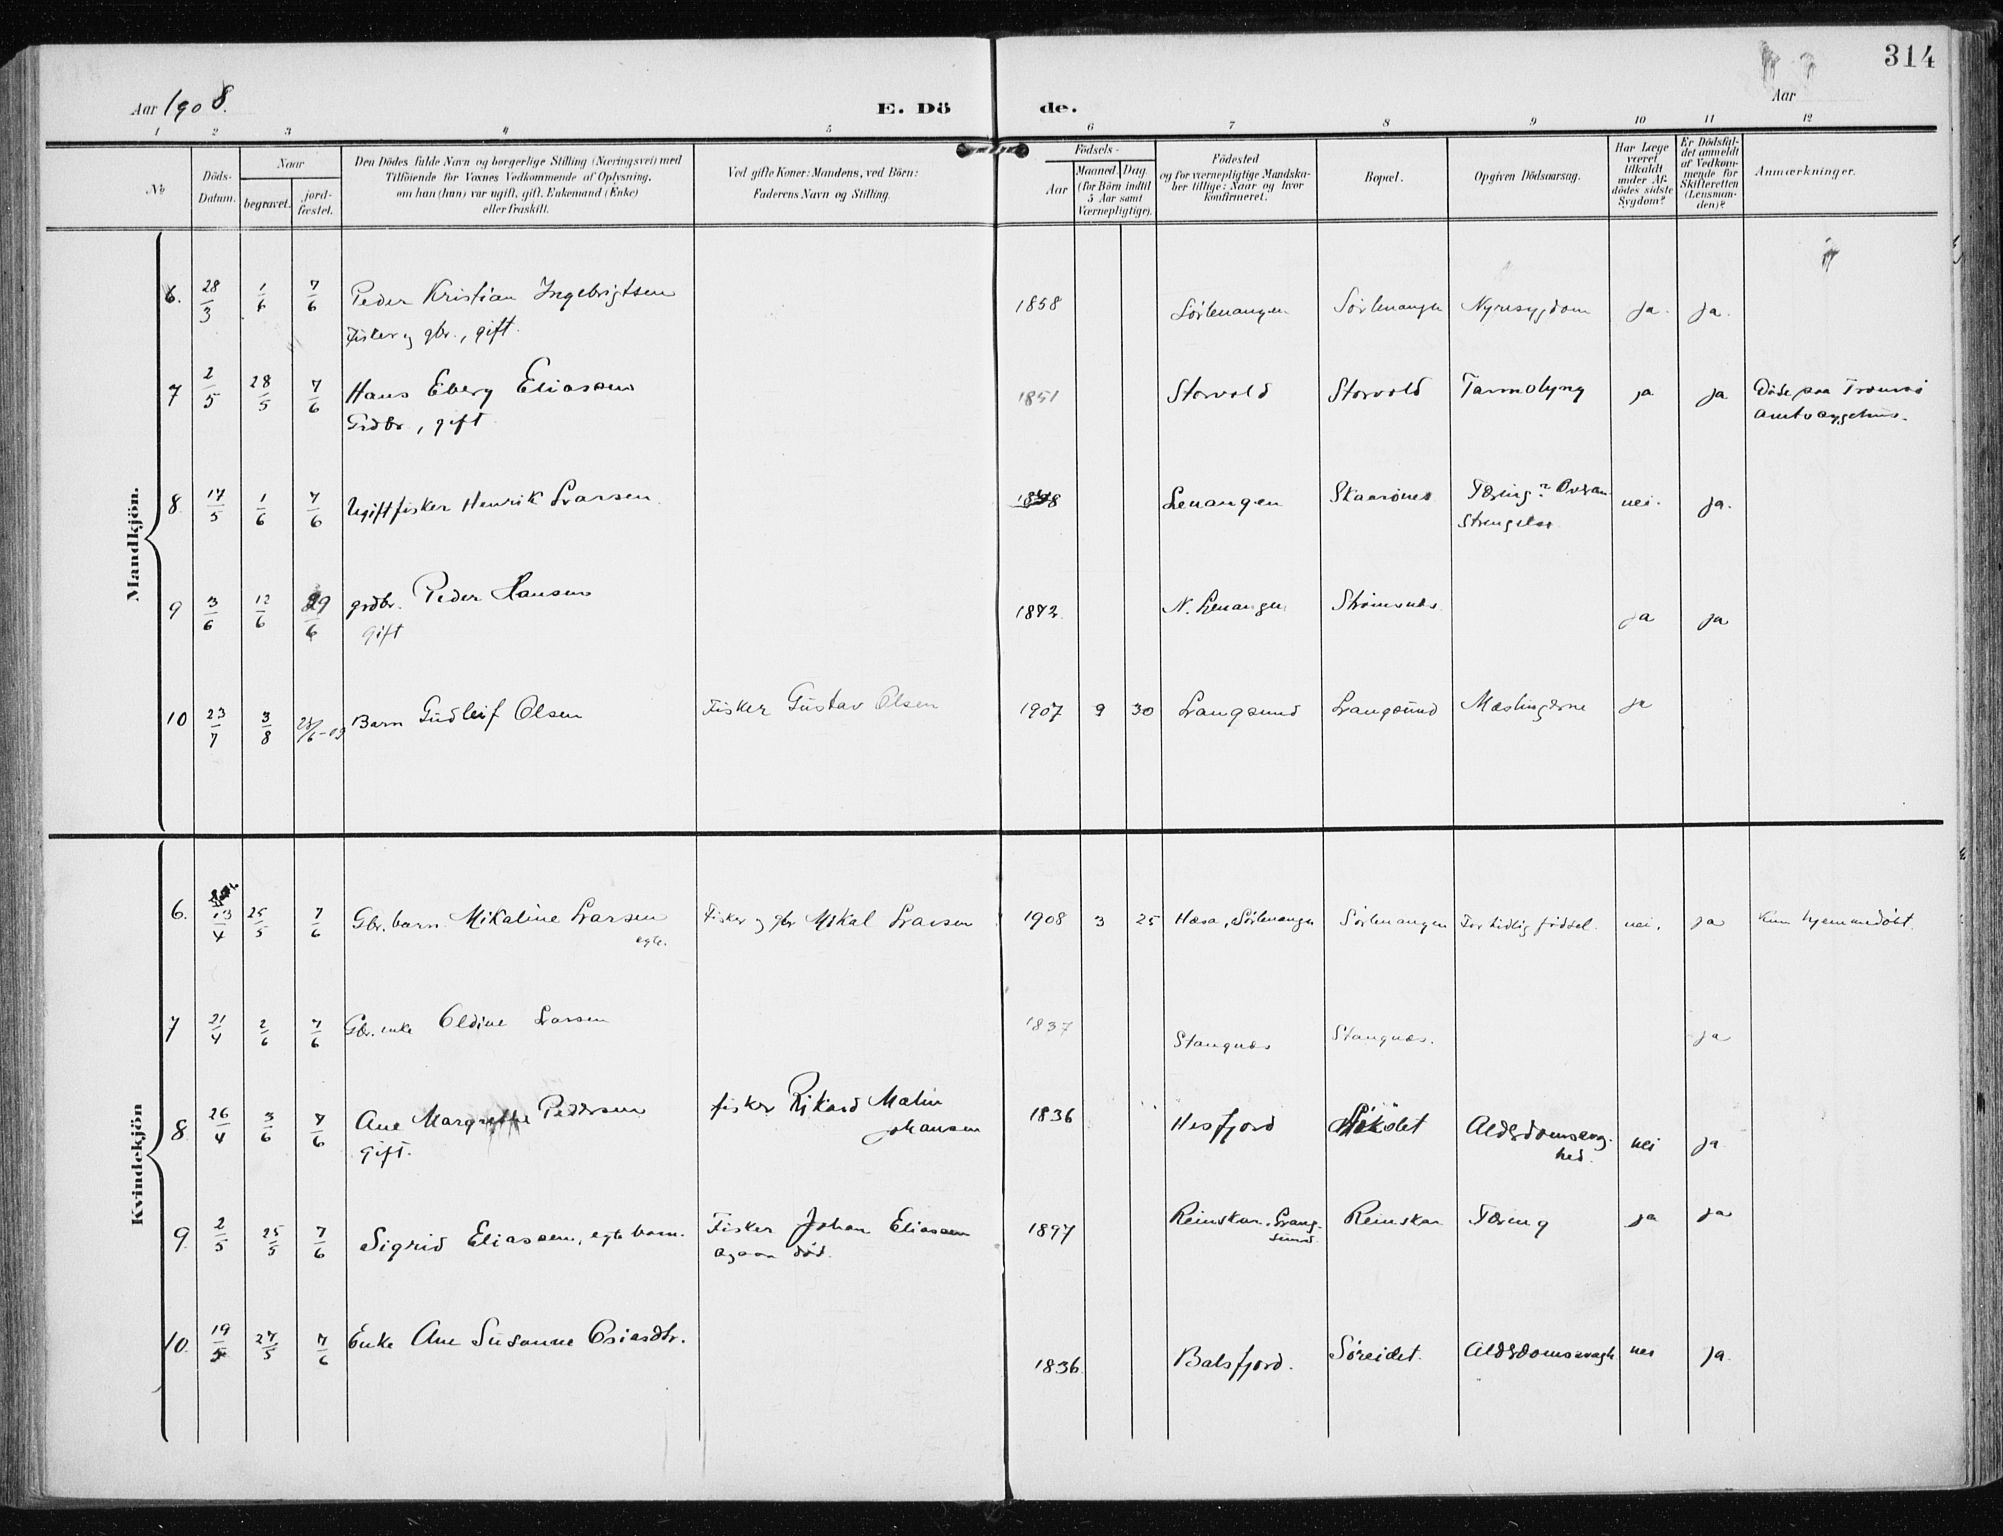 314
Aar 1908.
E. Dö de.
Aar
1 2 3 4 5 6 7 8 9 10 11 12
No
Döds-Datum.
Naar
begravet.
jord-fæstet.
Den Dödes fulde Navn og borgerlige Stilling (Næringsvei) med
Tilföiende for Voxnes Vedkommende af Oplysning,
om han (hun) var ugift, gift, Enkemand (Enke)
eller fraskilt.
Ved gifte Koner: Mandens, ved Börn:
Faderens Navn og Stilling.
Födsels-
Aar
Maaned. Dag.
(for Börn indtil
5 Aar samt
Værnepligtige).
Födested
og for værnepligtige Mandska-
ber tillige: Naar og hvor
konfirmeret.
Bopæl.
Opgiven Dödsaarsag.
Har Læge
været
tilkaldt
under Af-
dödes sidste
Sygdom?
Er Dödsfal-
det anmeldt
af Vedkom-
mende for
Skifteretten
(Lensman-
den)?
Anmærkninger.
Mandkjön.
6. 28/3 1/6 7/6 Peder Kristian Ingebrigtsen 1858 Sörlenangen Sörlenangen Nyresygdom ja. ja.
Fisker og gbr., gift.
7 2/5 28/5 7/6 Hans Eberg Eliassen 1851 Storvold Storvold Tarmslyng ja ja Döde paa Tromsö
Grdbr., gift. amtssygehus.
8 17/5 1/6 7/6 Ugift fisker Henrik Larsen Lenangen Skaarönes Tæring? Overan-
strengelse nei. ja.
9 3/6 12/6 29/6 grdbr. Peder Hansen 1872 N. Lenangen Strömsnes ja ja
gift
10 23/7 3/8 Barn Gudleif Olsen Fisker Gustav Olsen 1907 9 30 Langsund Langsund Mæslingerne ja
Kvindekjön
6. 13/4 25/5 7/6 Gbr. barn Mikaline Larsen Fisker og gbr Mikal Larsen 1908 3 25 Hæsa, Sörlenangen Sörlenangen For tidlig födsel. nei. ja Kun hjemmedöbt.
egte.
7 21/4 2/6 7/6 Gbr. enke Oldine Larsen 1837 Stangnæs Stangnæs. ja
8 26/4 3/6 7/6 Ane Margrethe Pedersen fisker Rikard Malin 1836 Hesfjord Alderdomssvag-
gift. Johansen hed. nei ja
9. 2/5 25/5 7/6 Sigrid Eliassen, egte barn. Fisker Johan Eliassen 1897 Reinskar, Lang-
sund. Reinskar Tæring ja ja
ogsaa död.
10. 19/5 27/5 7/6 Enke Ane Susanne Osiasdtr. 1836 Balsfjord. Söreidet. Alderdomssvagh nei ja.